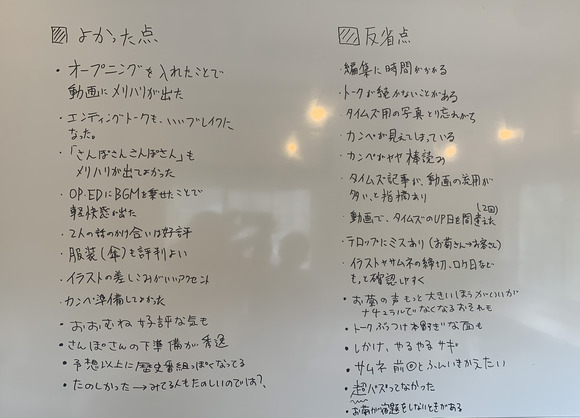 よかった点
・オープニングを入れたことで
動画にメリハリが出た
・エンディングトークも、いいブレイクに
なった。
・「さんぽさんさんぽさん」も
メリハリが出てよかった
・OP・EDにBGMを乗せたことで
軽快感が出た
・2人の話のかけ合いは好評
・服装(傘)も評判よい
・イラストの差しこみがいいアクセント
・カンペ準備してよかった
・おおむね好評な気も
・さんぽさんの下準備が秀逸
・予想以上に歴史番組っぽくなってる
・たのしかった→みてる人もたのしいのでは?
反省点
・編集に時間がかかる
・トークが続かないことがある
・タイムズ用の写真とり忘れがち
・カンペが見えてしまっている
・カンペがやや棒読み
・タイムズ記事が、動画の流用が
多い、と指摘あり
・動画で、タイムズのUP日を間違えた(2回)
・テロップにミスあり(お菊さん→お客さん)
・イラストやサムネの締切、ロケ日など
もっと確認しやすく
・お菊の声もっと大きいほうがいいが
ナチュラルでなくなるおそれも
・トークぶっつけ本番な面も
・しかけ、やるやるサギ
・サムネ前のとふんいきかえたい
・超バズってなかった
・お菊が宿題をしないときがある